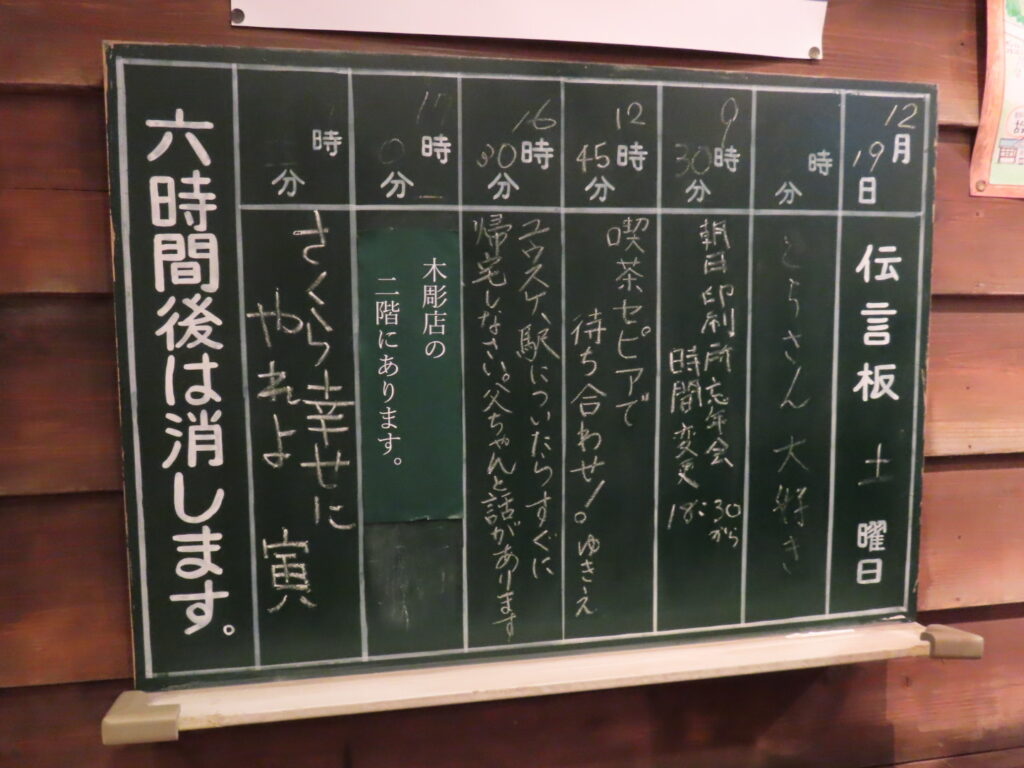 12月
19日
伝言板 土曜日
時
分
とらさん 大好き
9時
30分
朝日印刷所忘年会
時間変更 18:30から
12時
45分
喫茶セピアで
待ち合わせ!。ゆきえ
16時
30分
ユウスケ、駅についたらすぐに
帰宅しなさい。父ちゃんと話があります
17時
0分
木彫店の
二階にあります。
時
分
さくら幸せに
やれよ 寅
六時間後は消します。